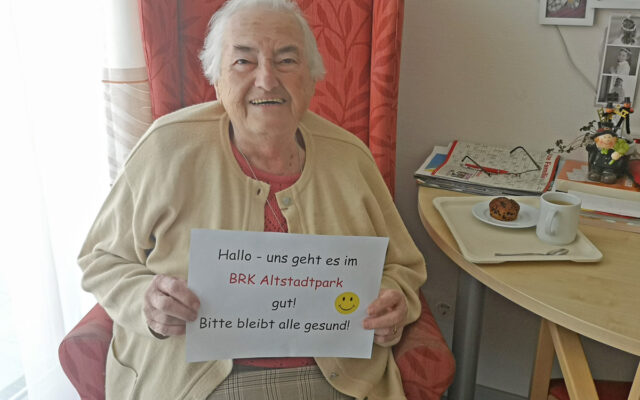 Hallo - uns geht es im
BRK Altstadtpark
gut!
Bitte bleibt alle gesund!